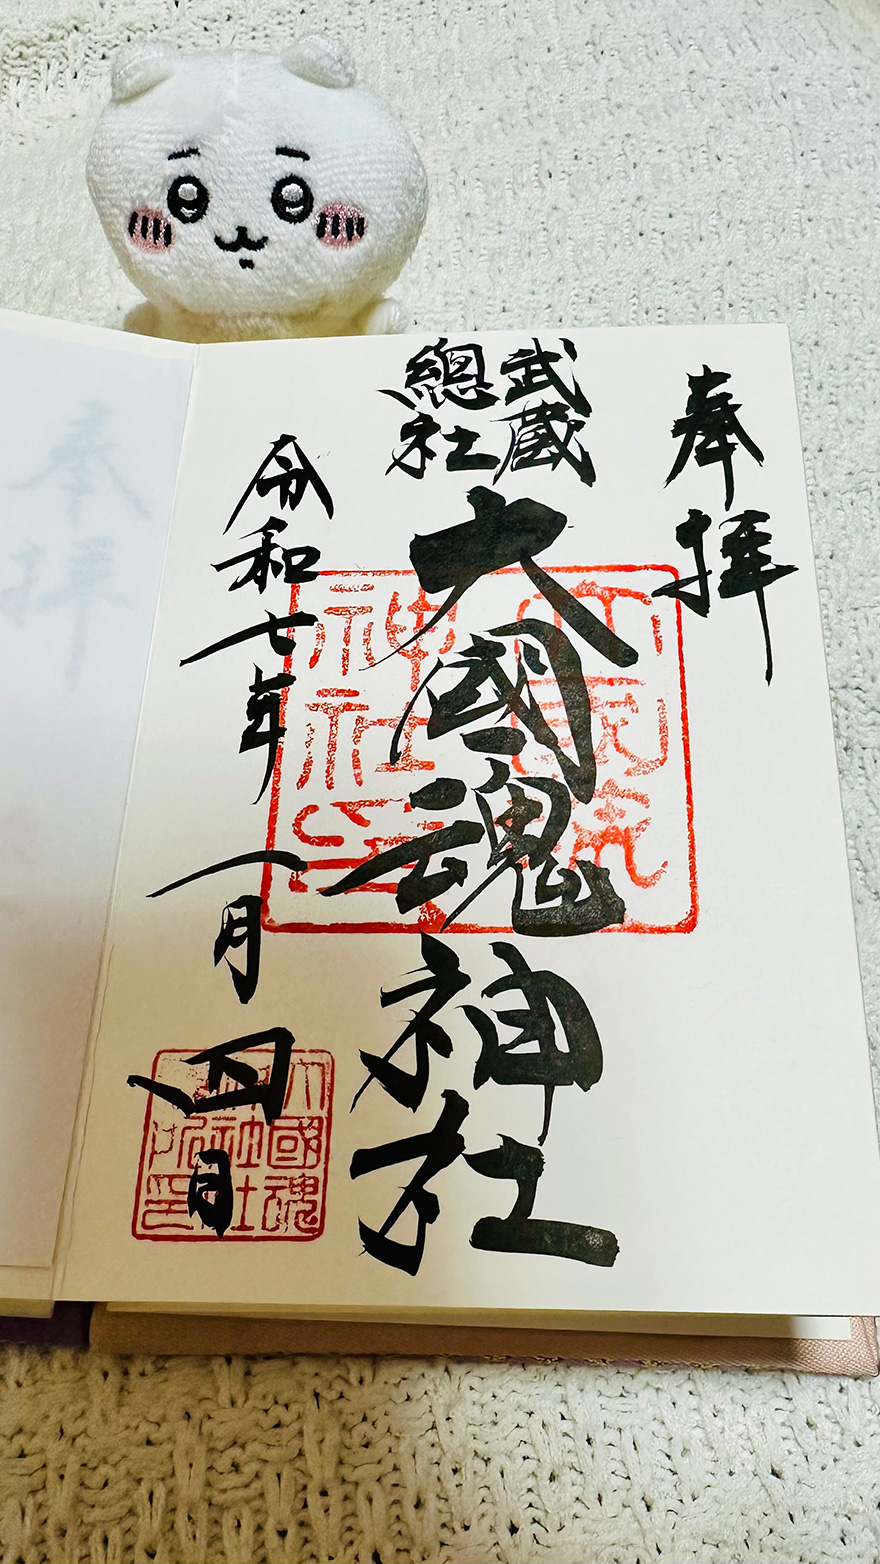 奉拝
武蔵
總社
大國魂神社
令和七年一月四日
大國魂
神社印
大國魂
神社社
所印